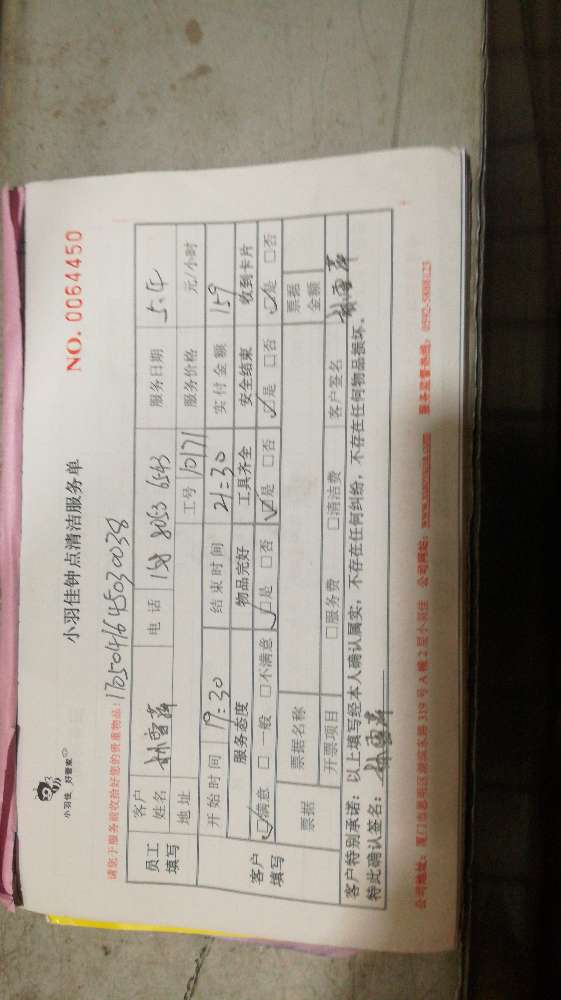 小羽佳 好管家
小羽佳钟点清洁服务单
NO. 0064450
请您于服务前收拾好您的贵重物品!
员工填写 客户姓名 林雪萍 电话 158 8053 6543 服务日期 5.4
地址 工号 10171 服务价格 元/小时
开始时间 19:30 结束时间 21:30 实付金额 159
客户填写 服务态度 物品完好 工具齐全 安全结束 收到卡片
☑满意 □一般 □不满意 ☑是 □否 ☑是 □否 ☑是 □否 ☑是 □否
票据 票据名称 票据金额
开票项目 □服务费 □清洁费 客户签名 林雪萍
客户特别承诺:以上填写经本人确认属实,不存在任何纠纷,不存在任何物品损坏。
特此确认签名:林雪萍
公司地址:厦门市思明区湖滨东路 319 号 A 幢 2 层小羽佳 公司网站: 服务监督热线: